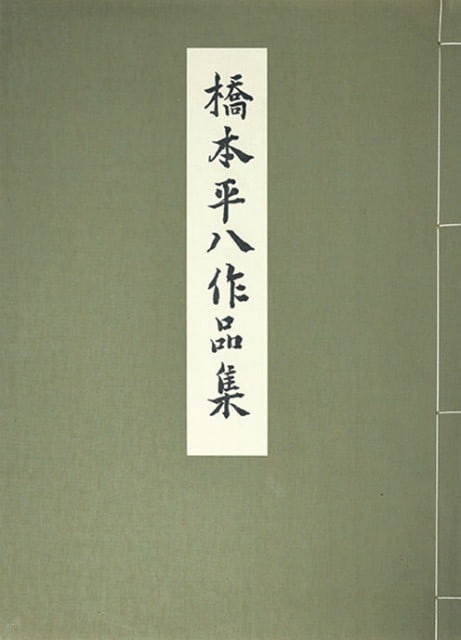 橋本平八作品集